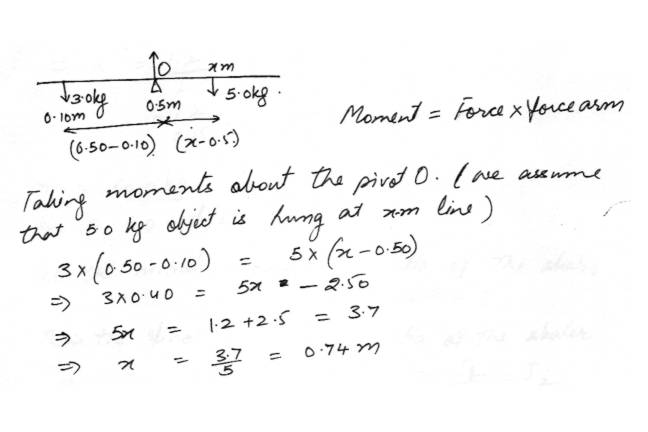 O xm
3.0kg 0.5m 5.0kg.
0.10m
Moment = Force x force arm
(0.50-0.10) (x-0.5)
Taking moments about the pivot O. (we assume
that 50 kg object is hung at xm line)
3 x (0.50-0.10) = 5 x (x-0.50)
⇒ 3x0.40 = 5x - 2.50
⇒ 5x = 1.2 + 2.5 = 3.7
⇒ x = 3.7/5 = 0.74 m